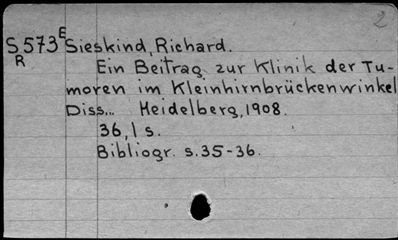 2
S573E Sieskind, Richard.
R
Ein Beitrag zur Klinik der Tu-
moren im Kleinhirnbrückenwinkel
Diss... Heidelberg, 1908.
36, 1 s.
Bibliogr. s. 35-36.